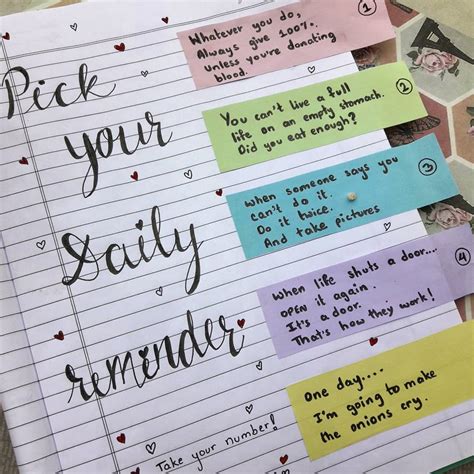 Pick
your
Daily
reminder
Take your number!
Whatever you do,
Always give 100%.
Unless you're donating
blood.
1
You can't live a full
life on an empty stomach.
Did you eat enough?
2
When someone says you
can't do it.
Do it twice.
And take pictures
3
When life shuts a door...
OPEN it again.
It's a door.
That's how they work!
4
One day....
I'm going to make
the onions cry.